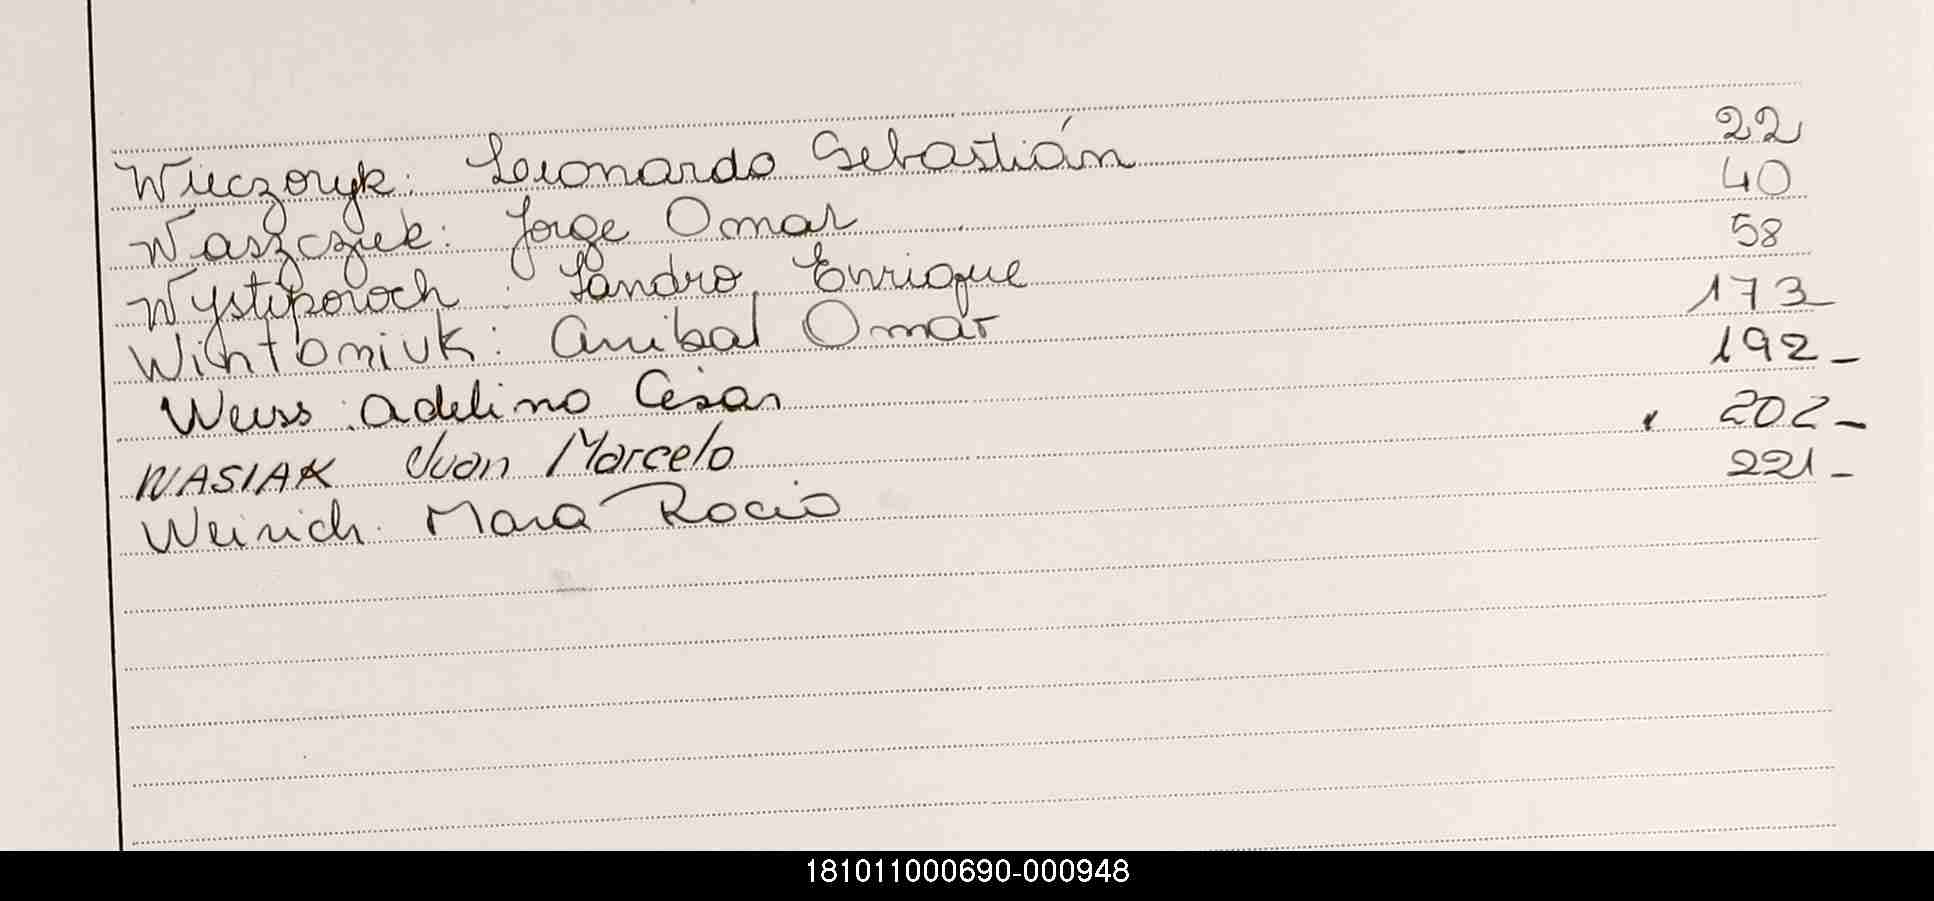 Wieczoryk: Leonardo Sebastián 22
Waszcziek: Jorge Omar 40
Wystiporoch: Sandro Enrique 58
Wintoniuk: Anibal Omar 173
Weiss: Adelino César 192-
WASIAK Juan Marcelo 202-
Weirich. Mara Rocio 221-
181011000690-000948